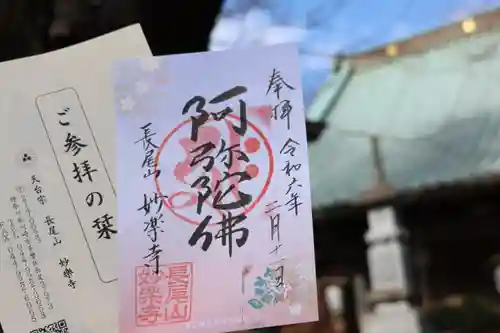 奉拝
令和六年
二月十二日
阿弥陀佛
長尾山 妙樂寺
長尾山
妙樂寺
ご参拝の栞
天台宗 長尾山 妙樂寺